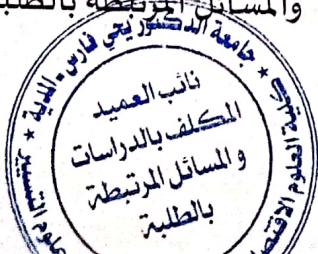 والمسائل المرتبطة بالطلبة
جامعة الدكتور يحي فارس - المدية *
العلوم الاقتصا
علوم التسيير *
نائب العميد
المكلف بالدراسات
و المسائل المرتبطة
بالطلبة